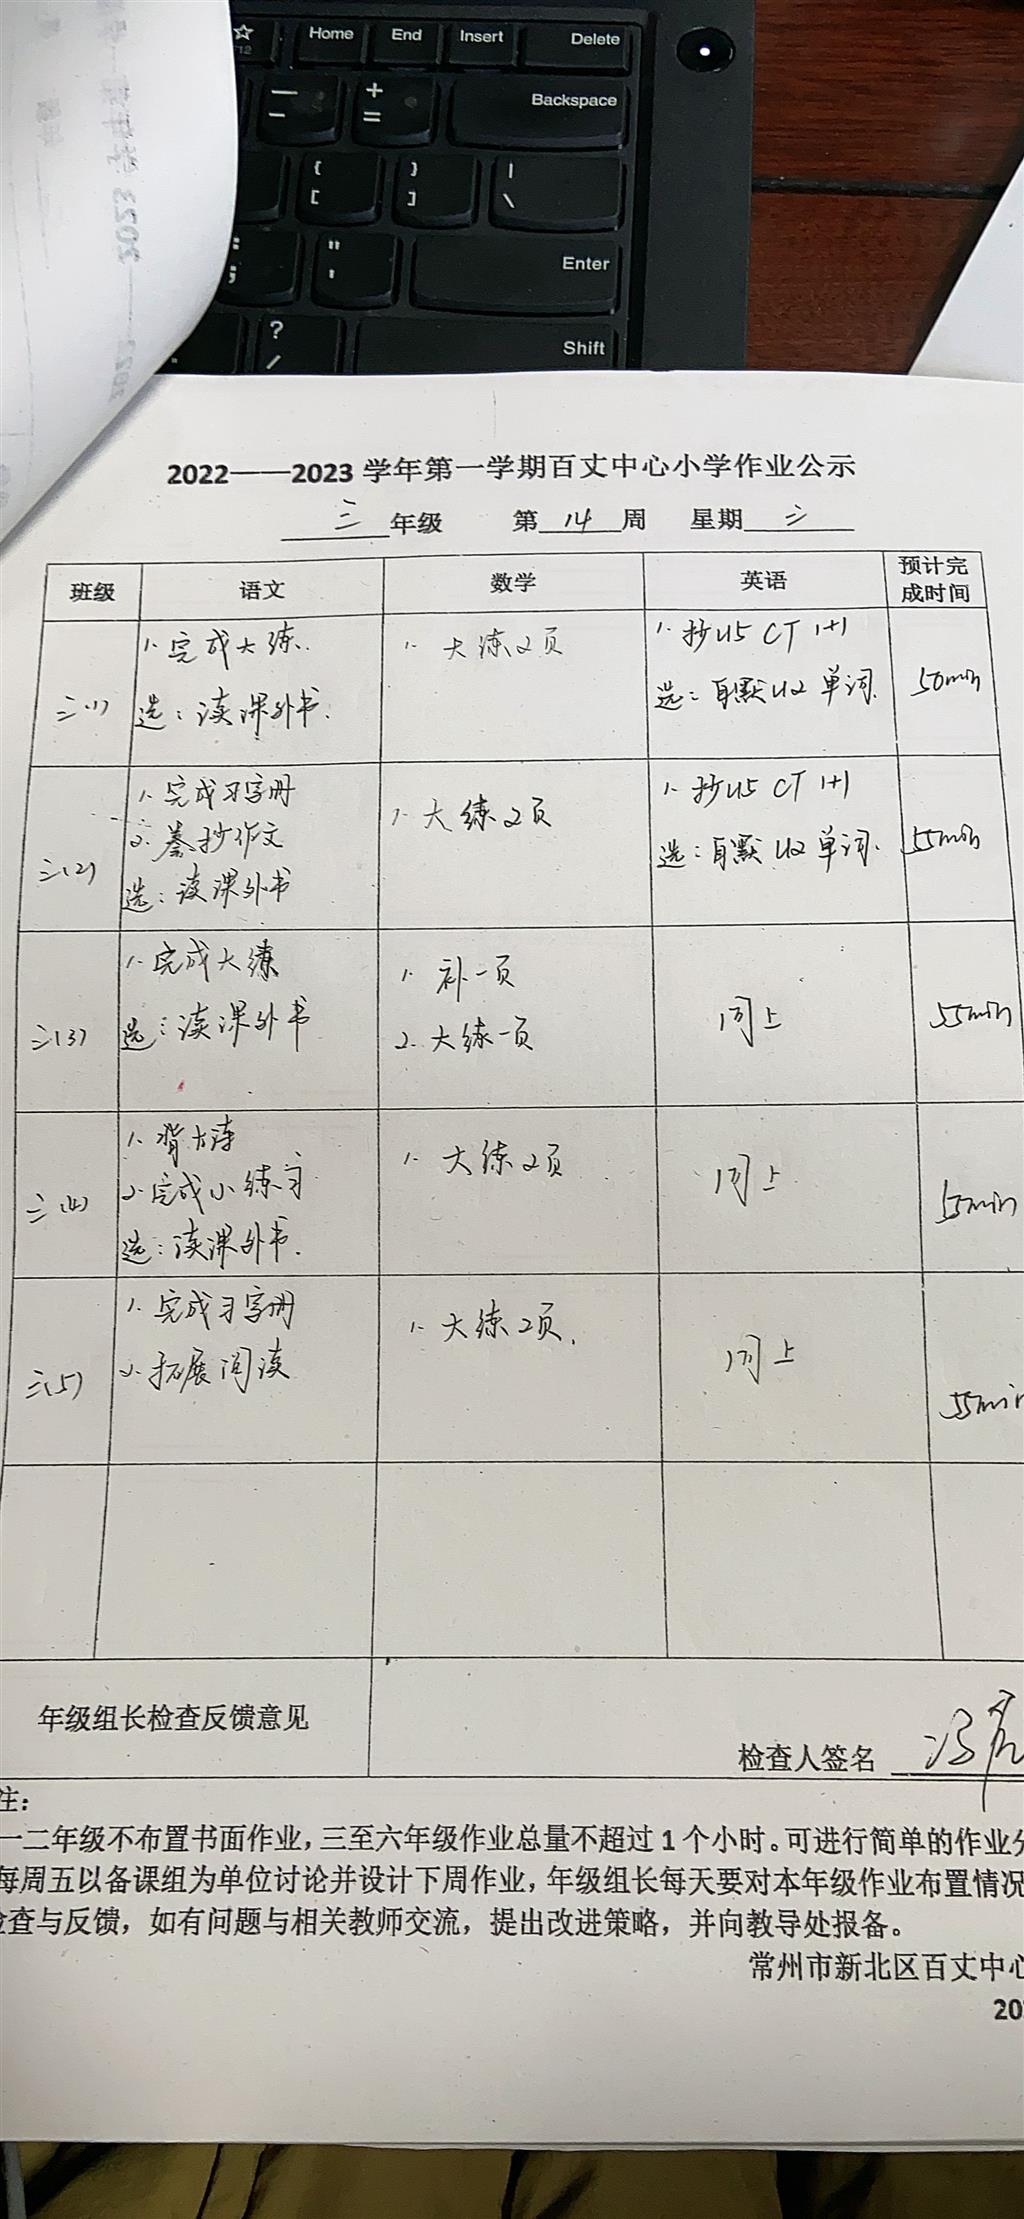 Home End Insert Delete
Backspace
Enter
Shift
2022——2023 学年第一学期百丈中心小学作业公示
三 年级 第 14 周 星期 三
班级 语文 数学 英语 预计完成时间
三(1)
1. 完成大练.
选：读课外书.
1. 大练2页
1. 抄U5 CT 1+1
选：自默U2单词.
50min
三(2)
1. 完成习字册
2. 誊抄作文
选：读课外书
1. 大练2页
1. 抄U5 CT 1+1
选：自默U2单词.
55min
三(3)
1. 完成大练
选：读课外书
1. 补一页
2. 大练一页
同上
55min
三(4)
1. 背大读
2. 完成小练习
选：读课外书.
1. 大练2页
同上
55min
三(5)
1. 完成习字册
2. 拓展阅读
1. 大练2页.
同上
55min
年级组长检查反馈意见
检查人签名
注：
一二年级不布置书面作业，三至六年级作业总量不超过 1 个小时。可进行简单的作业分
每周五以备课组为单位讨论并设计下周作业，年级组长每天要对本年级作业布置情况
查与反馈，如有问题与相关教师交流，提出改进策略，并向教导处报备。
常州市新北区百丈中心
20